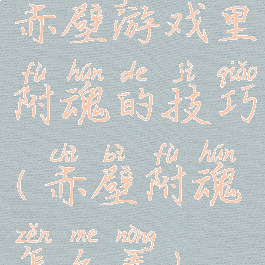 赤壁游戏里
fù hún de jì qiǎo
附魂的技巧
chì bì fù hún
(赤壁附魂
zěn me nòng
怎么弄)